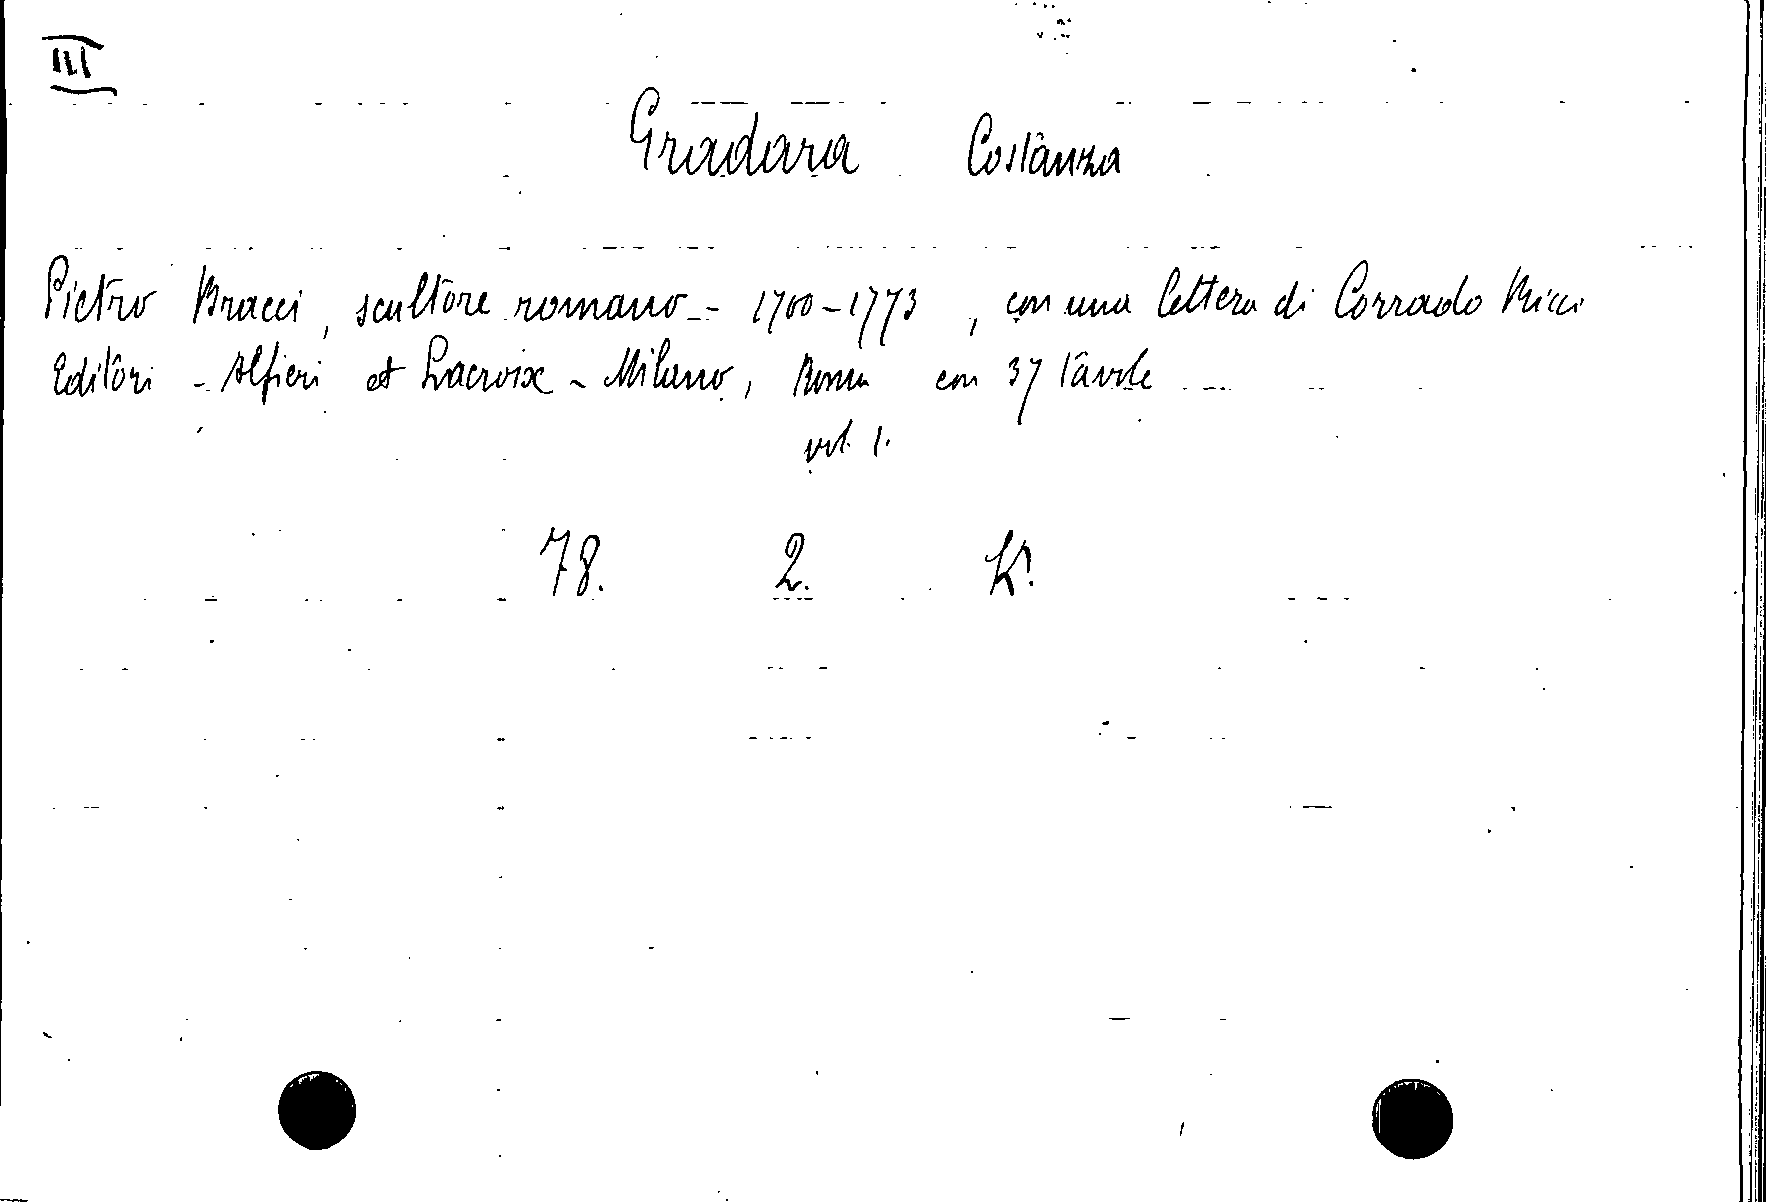 III
Gradara Costanza
Pietro Bracci, scultore romano - 1700-1773, con una lettera di Corrado Ricci
Editori - Alfieri et Lacroix - Milano, Roma con 37 tavole
vol. 1.
78. 2. K